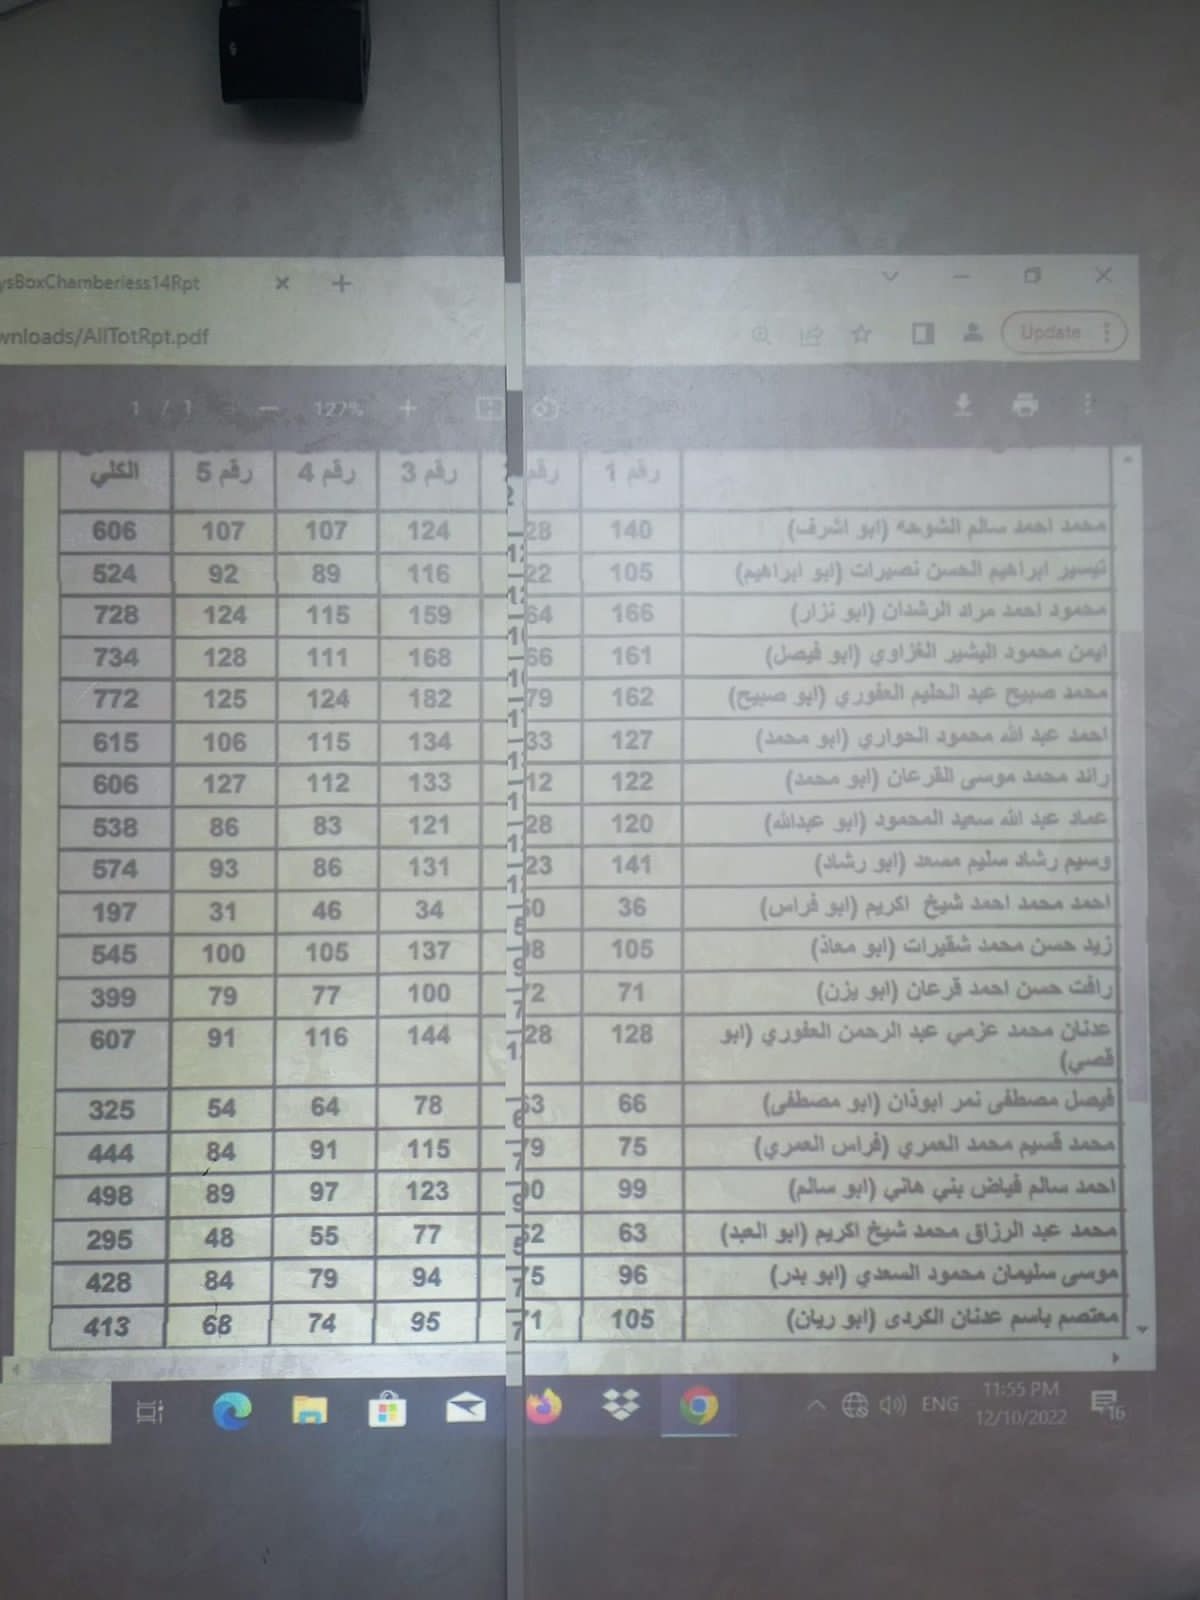 ysBoxChamberless14Rpt
wnloads/AllTotRpt.pdf
Update
1 / 1 127%
رقم 1 رقم 2 رقم 3 رقم 4 رقم 5 الكلي
محمد احمد سالم الشوحه (ابو اشرف) 140 128 124 107 107 606
تيسير ابراهيم الحسن نصيرات (ابو ابراهيم) 105 122 116 89 92 524
محمود احمد مراد الرشدان (ابو نزار) 166 164 159 115 124 728
ايمن محمود البشير الغزاوي (ابو فيصل) 161 166 168 111 128 734
محمد صبيح عبد الحليم العفوري (ابو صبيح) 162 179 182 124 125 772
احمد عبد الله محمود الحواري (ابو محمد) 127 133 134 115 106 615
رائد محمد موسى القرعان (ابو محمد) 122 112 133 112 127 606
عماد عبد الله سعيد المحمود (ابو عبدالله) 120 128 121 83 86 538
وسيم رشاد سليم مسعد (ابو رشاد) 141 123 131 86 93 574
احمد محمد احمد شيخ اكريم (ابو فراس) 36 50 34 46 31 197
زيد حسن محمد شقيرات (ابو معاذ) 105 98 137 105 100 545
رافت حسن احمد قرعان (ابو يزن) 71 72 100 77 79 399
عدنان محمد عزمي عبد الرحمن العفوري (ابو 128 128 144 116 91 607
قصي)
فيصل مصطفى نمر ابوذان (ابو مصطفى) 66 63 78 64 54 325
محمد قسيم محمد العمري (فراس العمري) 75 79 115 91 84 444
احمد سالم فياض بني هاني (ابو سالم) 99 90 123 97 89 498
محمد عبد الرزاق محمد شيخ اكريم (ابو العبد) 63 52 77 55 48 295
موسى سليمان محمود السعدي (ابو بدر) 96 75 94 79 84 428
معتصم باسم عدنان الكردي (ابو ريان) 105 71 95 74 68 413
ENG 11:55 PM
12/10/2022
16